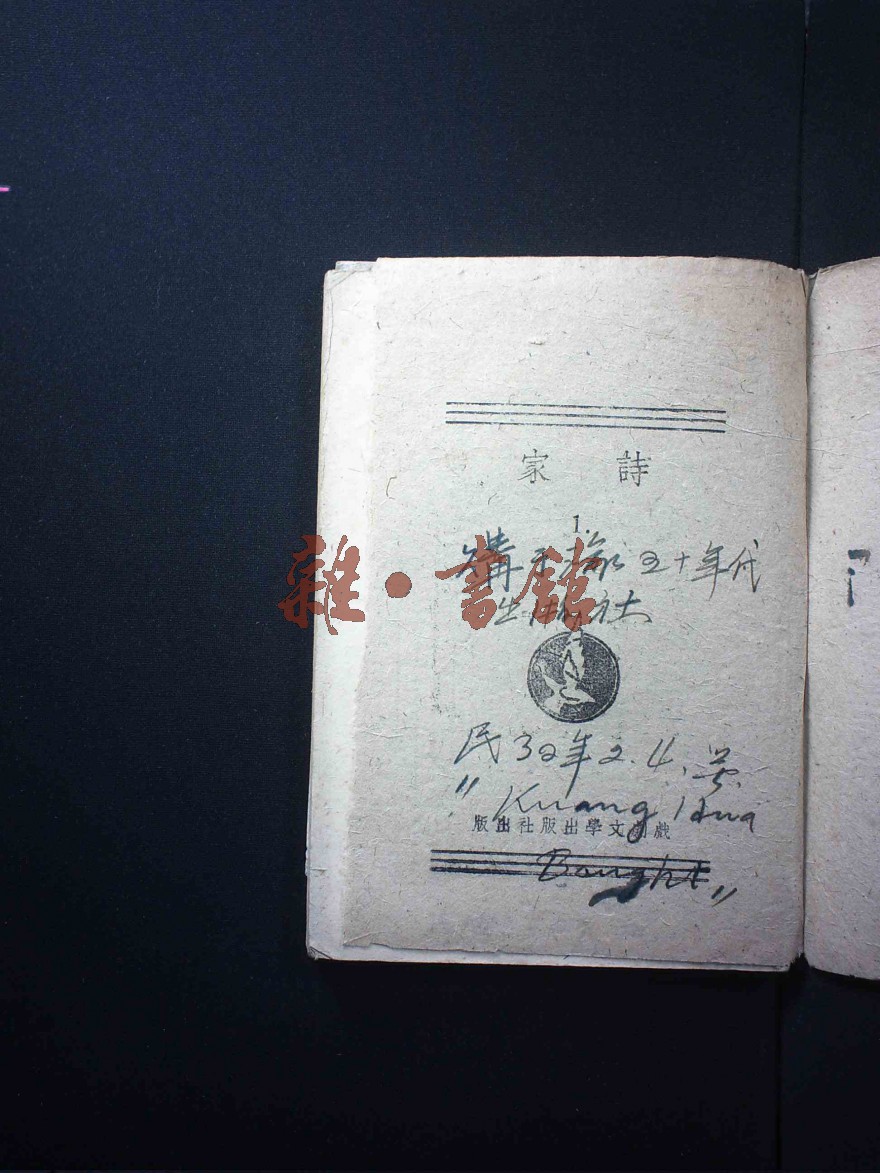 詩家
1.
購于渝五十年代
出版社
雜·書館
民32年2.4.
"Kuang Hua
戲劇文學出版社出版
Bought"